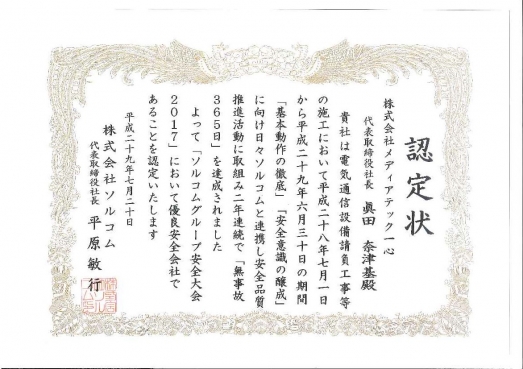 認定状
株式会社メディアテック一心
代表取締役社長 眞田 奈津基殿
貴社は電気通信設備請負工事等
の施工において平成二十八年七月一日
から平成二十九年六月三十日の期間
「基本動作の徹底」「安全意識の醸成」
に向け日々ソルコムと連携し安全品質
推進活動に取組み二年連続で「無事故
365日」を達成されました
よって「ソルコムグループ安全大会
2017」において優良安全会社で
あることを認定いたします
平成二十九年七月二十日
株式会社ソルコム
代表取締役社長 平原敏行